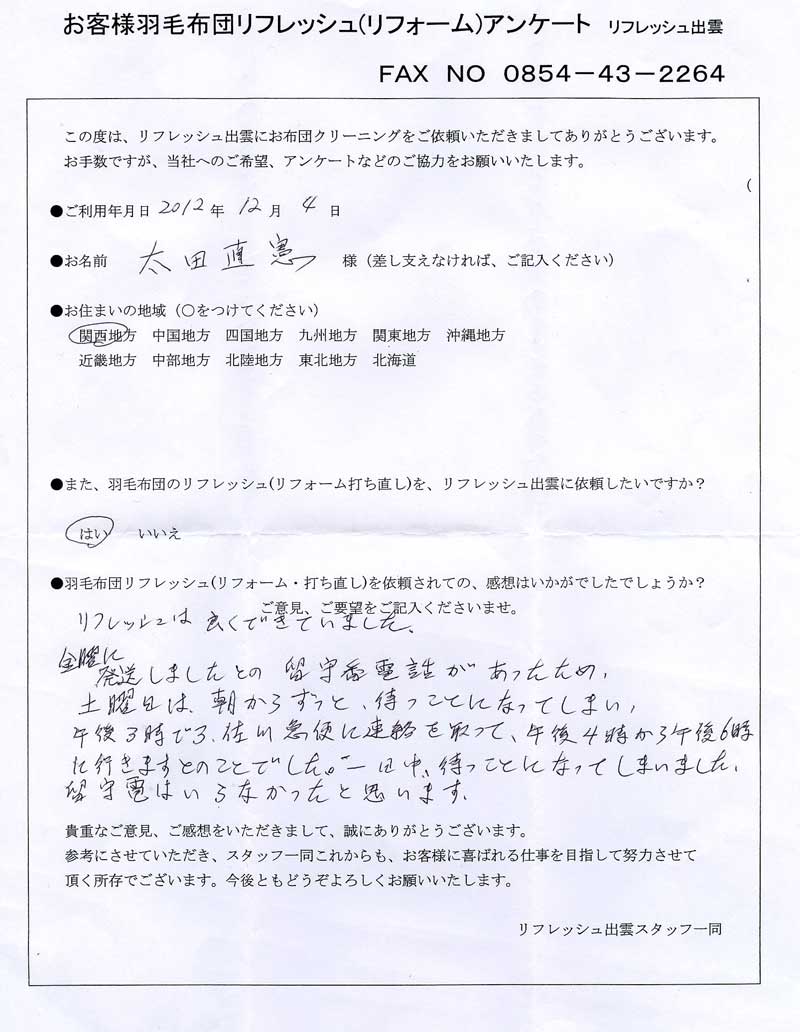 お客様羽毛布団リフレッシュ(リフォーム)アンケート リフレッシュ出雲
FAX NO 0854-43-2264
この度は、リフレッシュ出雲にお布団クリーニングをご依頼いただきましてありがとうございます。
お手数ですが、当社へのご希望、アンケートなどのご協力をお願いいたします。
(
●ご利用年月日 2012年 12月 4日
●お名前 太田直憲 様（差し支えなければ、ご記入ください）
●お住まいの地域（○をつけてください）
関西地方 中国地方 四国地方 九州地方 関東地方 沖縄地方
近畿地方 中部地方 北陸地方 東北地方 北海道
●また、羽毛布団のリフレッシュ(リフォーム打ち直し)を、リフレッシュ出雲に依頼したいですか？
はい いいえ
●羽毛布団リフレッシュ(リフォーム・打ち直し)を依頼されての、感想はいかがでしたでしょうか？
ご意見、ご要望をご記入くださいませ。
リフレッシュは良くできていました。
金曜に
発送しましたとの留守番電話があったため、
土曜日は、朝からずっと、待つことになってしまい、
午後3時で、佐川急便に連絡を取って、午後4時から午後6時
に行きますとのことでした。一日中、待つことになってしまいました。
留守電はいらなかったと思います。
貴重なご意見、ご感想をいただきまして、誠にありがとうございます。
参考にさせていただき、スタッフ一同これからも、お客様に喜ばれる仕事を目指して努力させて
頂く所存でございます。今後ともどうぞよろしくお願いいたします。
リフレッシュ出雲スタッフ一同